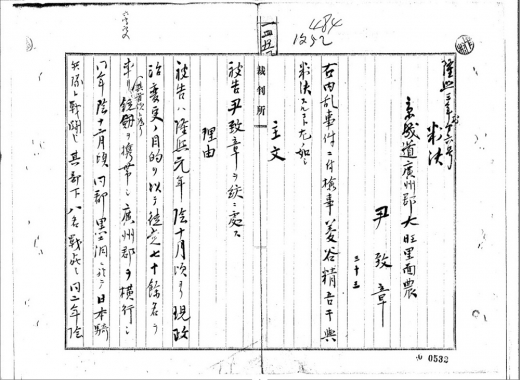 484
隆熙二年
判決
京城道廣州郡大旺里面農
尹致章
三十三
右内乱事件ニ付検事菱谷精吾干與
判決スルコト左ノ如シ
主文
被告尹致章ヲ絞ニ處ス
理由
被告ハ隆熙元年陰十月頃ヨリ現政
治変更ノ目的ヲ以テ徒党七十余名ヲ
率ヒ銃劔ヲ携帯シ廣州郡ヲ横行シ
同年陰十二月頃同郡黒石洞ニ於テ日本騎
兵隊ト戦闘シ其部下八名戦死シ同二年陰
裁判所
0532